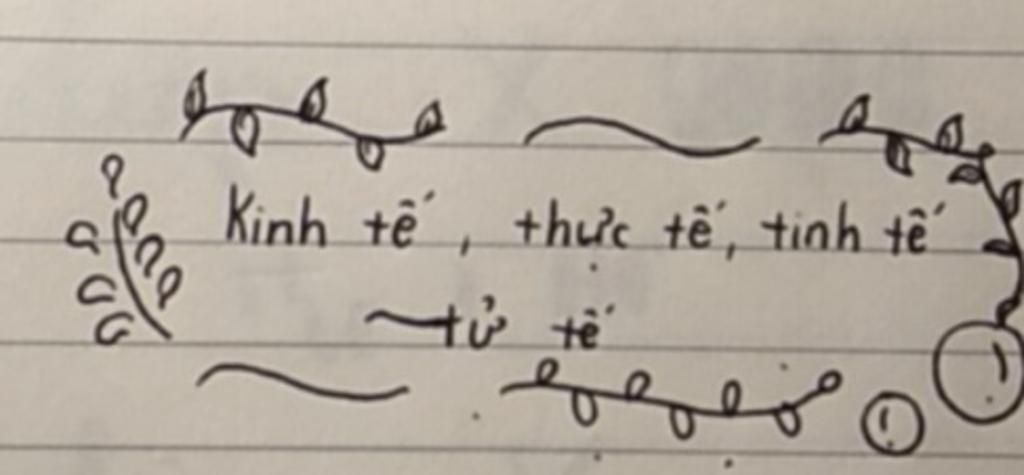 Kinh tế, thực tế, tinh tế
tử tế